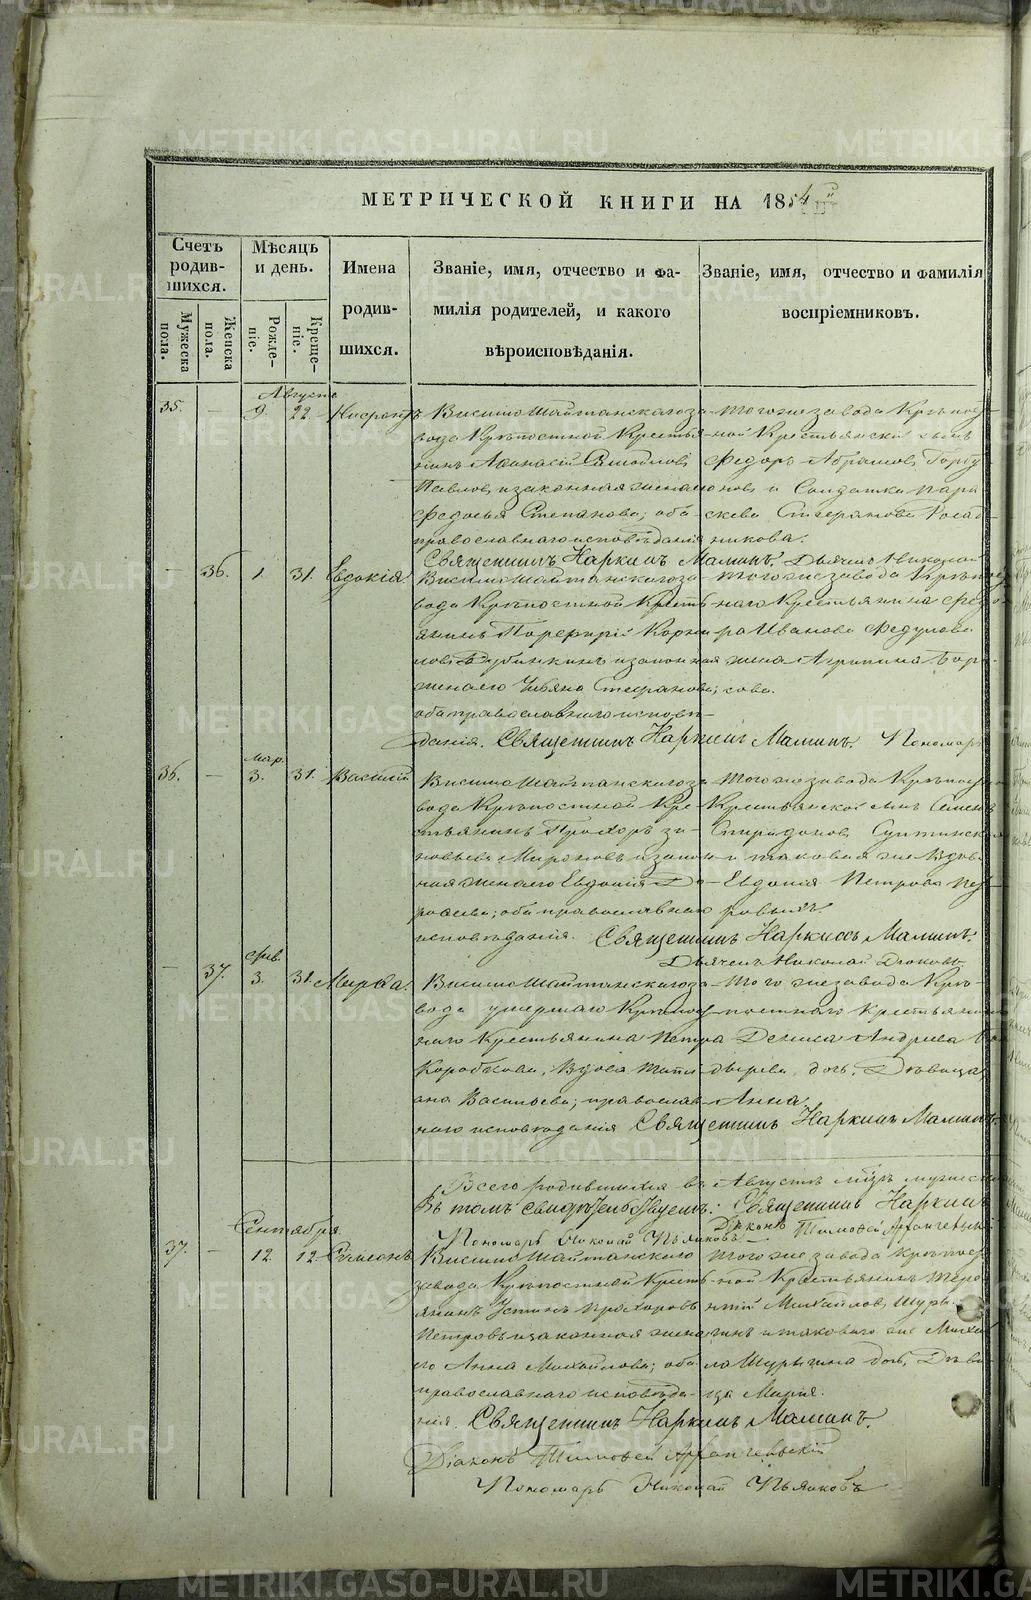 МЕТРИЧЕСКОЙ КНИГИ НА 1854
Счетъ родив-шихся.
Мужеска пола.
Женска пола.
Мѣсяцъ и день.
Рожде-ніе.
Креще-ніе.
Имена родив-шихся.
Званіе, имя, отчество и фа-милія родителей, и какого вѣроисповѣданія.
Званіе, имя, отчество и фамилія воспріемниковъ.
Августъ
35. — 9. 22.
Висимошайтанскаго за-
вода Крѣпостной Крестья-
нинъ Аѳанасій Самойловъ
Павловъ и законная жена
Федосья Степанова; оба
православнаго исповѣданія
Тогоже завода Крѣпост-
ной Крестьянскій сынъ
Федоръ Абрамовъ Горбу-
новъ и Солдатка Пара-
скева
никова.
Священникъ Наркисъ Маминъ. Дьячекъ Николай
— 36. 1. 31. Евдокія
Висимошайтанскаго за-
вода Крѣпостной Кресть-
янинъ Порфирій Корни-
ловъ Дубинкинъ и законная
жена его Ульяна Стефанова;
оба православнаго исповѣ-
данія.
Тогоже завода Крѣпост-
наго Крестьянина Федо-
ра Иванова Федулова
жена Агрипина Бори-
сова.
Священникъ Наркисъ Маминъ. Пономарь
36. — 3. 31. Василій
Висимошайтанскаго за-
вода Крѣпостной Кре-
стьянинъ Прохоръ Зи-
новьевъ Мироновъ и закон-
ная жена его Евдокія До-
роѳеева; оба православнаго
исповѣданія.
Тогоже завода Крѣпост-
Крестьянской сынъ Семенъ
Спиридоновъ
и таковая же Вдова
Евдокія Петрова
Священникъ Наркисъ Маминъ.
Дьячекъ Николай Дюковъ
— 37. 3. 31. Марѳа.
Висимошайтанскаго за-
вода умершаго Крѣпост-
наго Крестьянина Петра
Коробкова, Вдова Тати-
ана Васильева; православ-
наго исповѣданія
Тогоже завода Крѣ-
постнаго Крестьянина
Дениса Андреева
дочь, Дѣвица
Анна
Священникъ Наркисъ Маминъ.
Всего родившихся въ Августѣ мцѣ мужеска
Въ томъ свидѣтельствуемъ: Священникъ Наркисъ
Діаконъ Тимофей
Пономарь Николай Пьянковъ.
Сентября
37. — 12. 12. Симеонъ
Висимошайтанскаго
завода Крѣпостной Кресть-
янинъ Устинъ Прохоровъ
Петровъ и законная жена
его Анна Михайлова; оба
православнаго исповѣда-
нія.
Тогоже завода Крѣпост-
ной Крестьянинъ Тере-
нтій Михайловъ Шуры-
гинъ и таковаго же Михаи-
ла Шурыгина дочь, Дѣви-
ца Марія.
Священникъ Наркисъ Маминъ.
Діаконъ Тимофей
Пономарь Николай Пьянковъ
METRIKI.GASO-URAL.RU